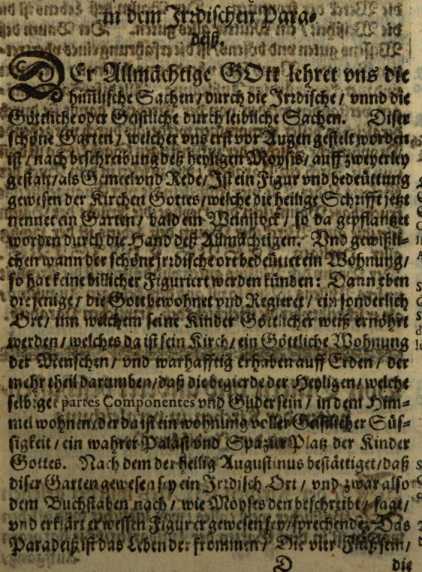 in dem Jrzdischen Para-
deiß.
DEr Allmächtige GOtt lehret vns die
himlische Sachen / durch die Jrzdische / vnnd die
Göttliche oder Geistliche durch leibliche Sachen. Diser
schöne Garten / welcher vns erst vor Augen gestelt worden
ist / nach beschreibung deß heyligen Moysis / auff zweyerley
gestalt / als Gemeel vnd Rede / Ist ein Figur vnd bedeüttung
gewesen der Kirchen Gottes / welche die heilige Schrifft jetzt
nennet an Garten / bald ein Weinstock / so da gepflantzet
worden durch die Hand deß Allmächtigen. Vnd gewißli-
chen wann der schöne jrzdische ort bedeütet ein Wohnung /
so hat keine billicher Figuriert werden künden: Dann eben
die jenige / die Gott bewohnet vnd Regieret / ein sonderlich
Ort / inn welchem seine Kinder Göttlicher weiß ernöhrt
werden / welches da ist sein Kirch / ein Göttliche Wohnung
der Menschen / vnd warhafftig erhaben auff Erden / der
mehr theil darumben / daß die begierde der Heyligen / welche
selbiger partes Componentes vnd Güder sein / in dem Him-
mel wohnen / der da ist ein wohnung voller Geistlicher Süs-
sigkeit / ein wahrer Palast vnd Spazier Platz der Kinder
Gottes. Nach dem der heilig Augustinus bestättiget / daß
diser Garten gewesen sey ein Jrzdisch Ort / vnd zwar also
dem Buchstaben nach / wie Moyses den beschreibt / sagt /
vnd erklärt er wessen Figur er gewesen sey / sprechende: Das
Paradeiß ist das Leben der frommen / Die vier Flüssen /
D die